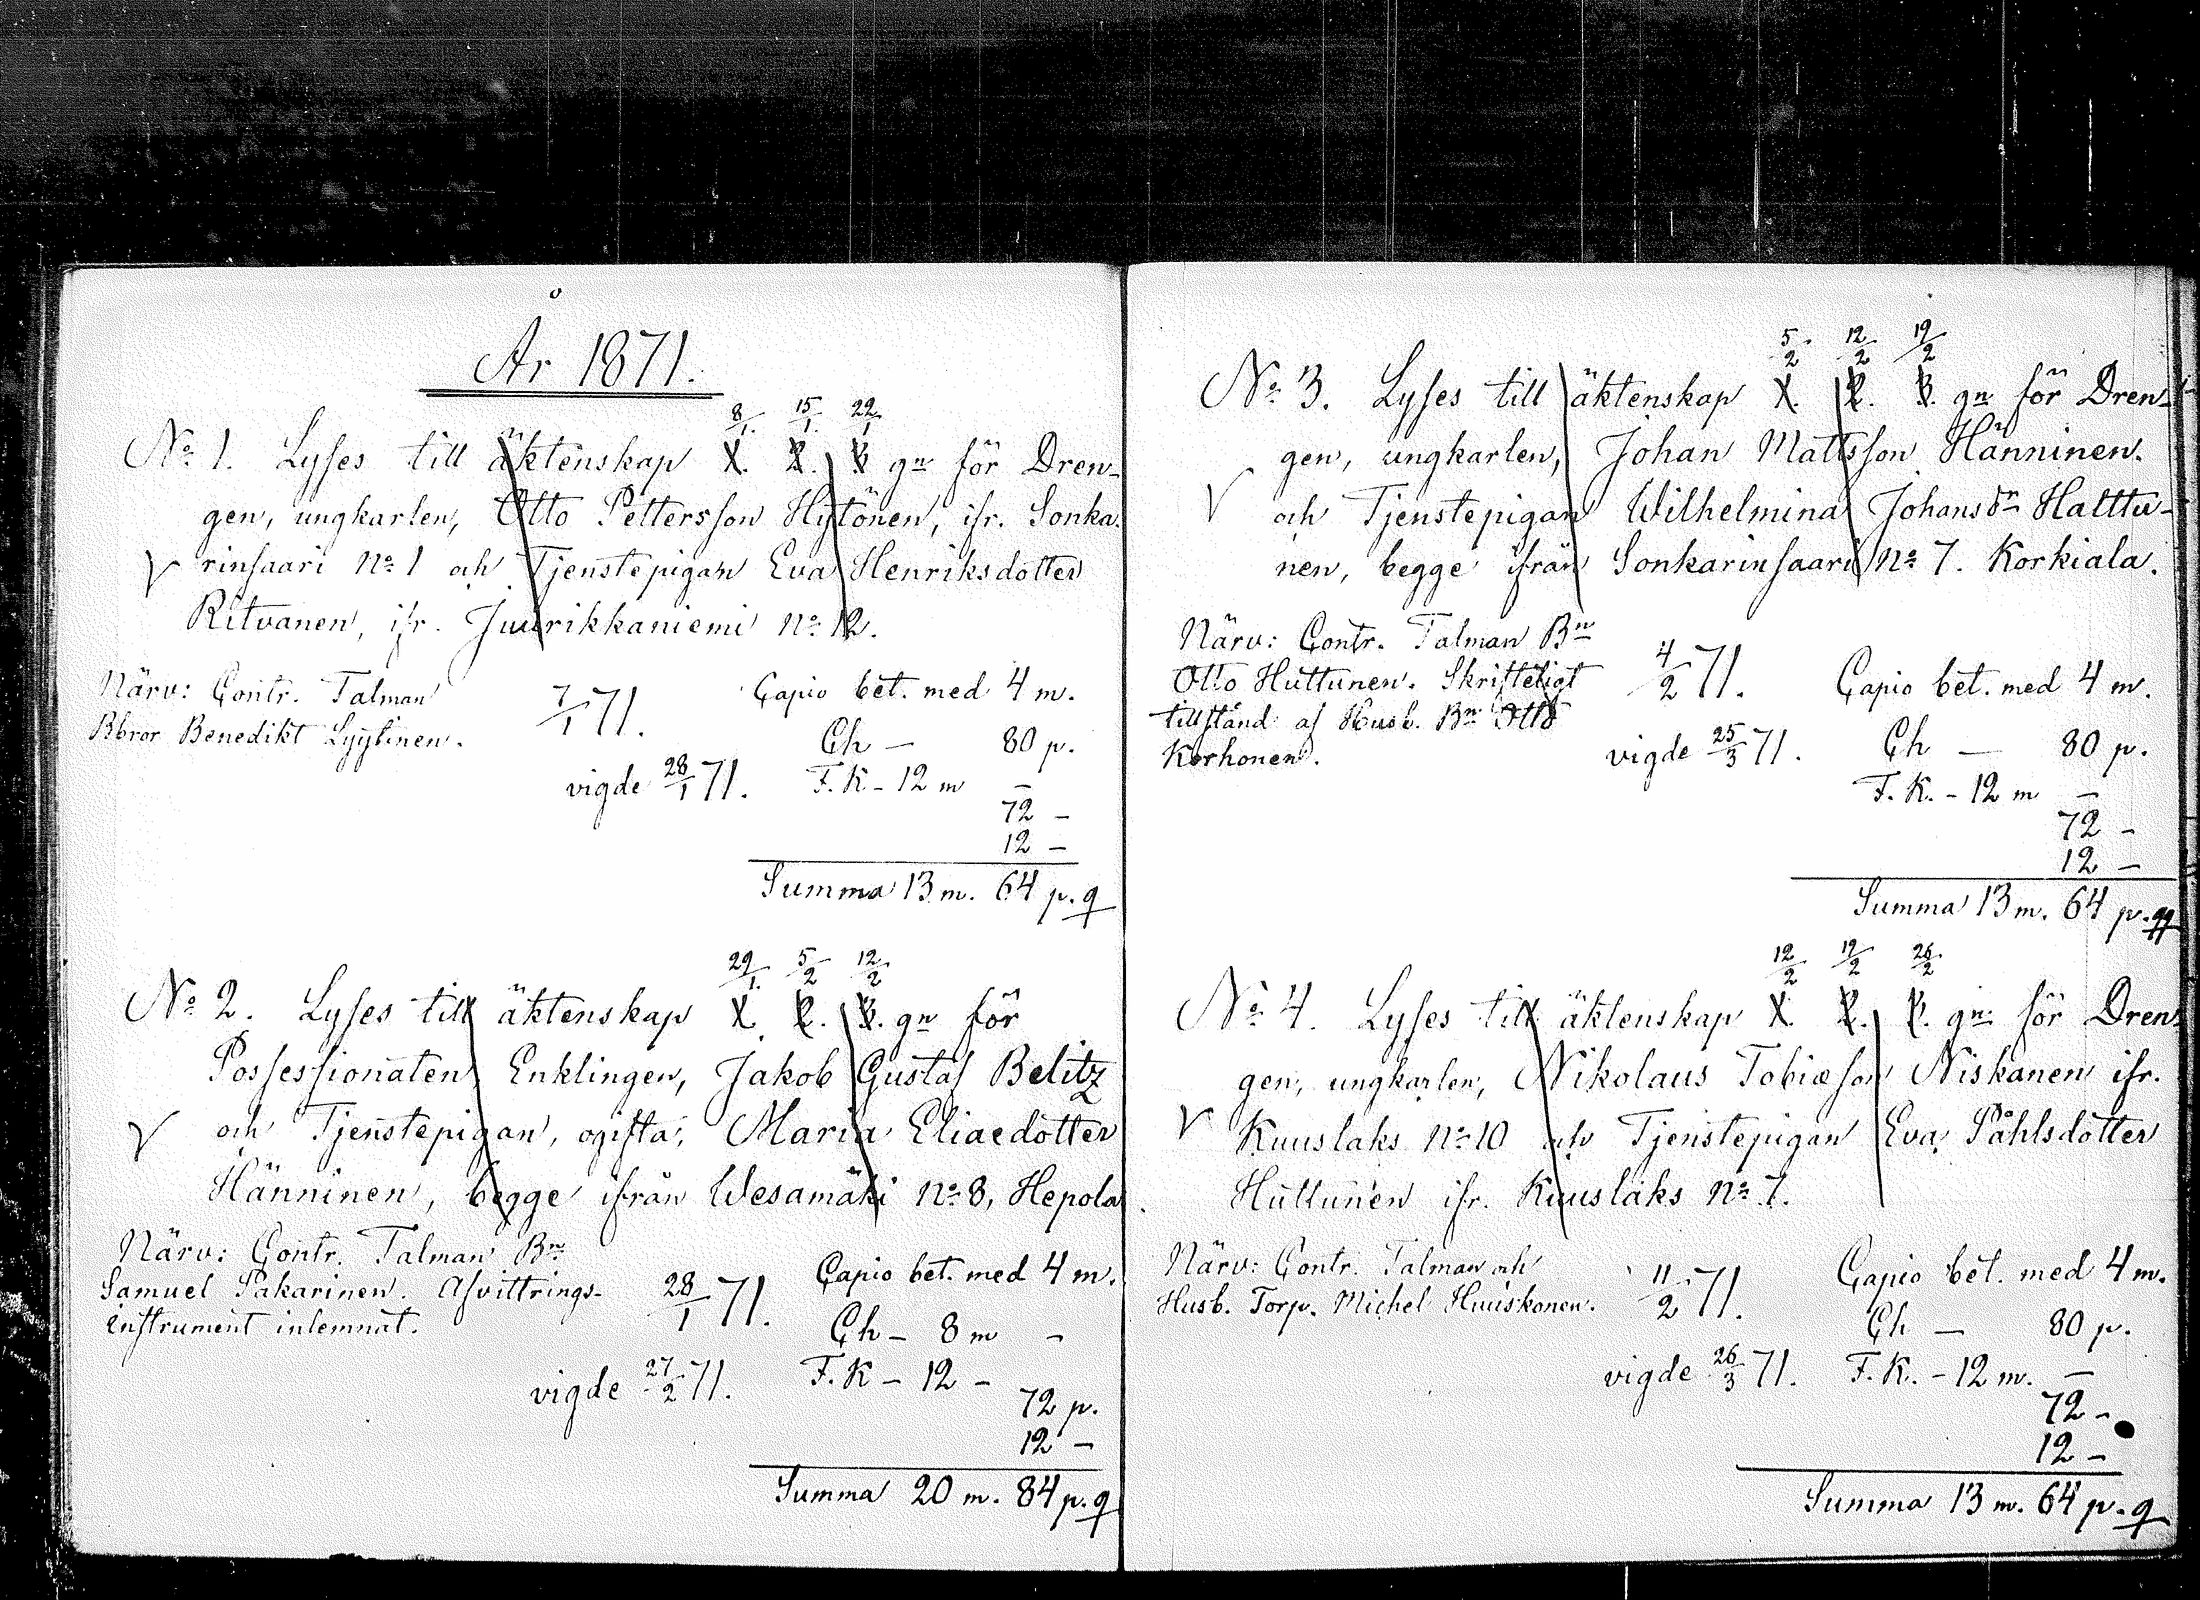 År 1871.
8/1. 15/1. 22/1
No 1. Lyses till äktenskap 1. 2. 3 gn för Dren-
gen, ungkarlen, Otto Pettersson Hytönen, ifr. Sonka-
V rinsaari No 1 och Tjenstepigan Eva Henriksdotter
Ritvanen, ifr. Juurikkaniemi No 12.
Närv: Contr. Talman
Bbror Benedikt Lyytinen.
7/1 71.
Capio bet. med 4 m.
Ch — 80 p.
vigde 28/1 71. F. K – 12 m —
72 –
12 –
Summa 13 m. 64 p. q
29/1. 5/2 12/2
No 2. Lyses till äktenskap 1. 2. 3. gn för
Possessionaten, Enklingen, Jakob Gustaf Belitz
V och Tjenstepigan, ogifta, Maria Eliaedotter
Hänninen, begge ifrån Wesamäki No 8, Hepola.
Närv: Contr. Talman Bn
Samuel Pakarinen. Afvittrings-
instrument inlemnat.
28/1 71.
Capio bet. med 4 m.
Ch – 8 m –
vigde 27/2 71. F. K – 12 –
72 p.
12 –
Summa 20 m. 84 p. q
5/2 12/2 19/2
No 3. Lyses till äktenskap 1. 2. 3. gn för Dren-
gen, ungkarlen, Johan Mattsson Hänninen.
V och Tjenstepigan Wilhelmina Johansdn Halttu-
nen, begge ifrån Sonkarinsaari No 7. Korkiala.
Närv: Contr. Talman Bn
Otto Huttunen. Skriftligt
tillstånd af Husb. Bn Otto
Korhonen.
4/2 71.
Capio bet. med 4 m.
vigde 25/3 71. Ch — 80 p.
F. K. – 12 m —
72 –
12 –
Summa 13 m. 64 p. q
12/2 19/2 26/2
No 4. Lyses till äktenskap 1. 2. 3. gn för Dren-
gen, ungkarlen, Nikolaus Tobiæson Niskanen ifr.
V Kuuslaks No 10 och Tjenstepigan Eva Påhlsdotter
Huttunen ifr. Kuuslaks No 7.
Närv: Contr. Talman och
Husb. Torp. Michel Huuskonen.
11/2 71.
Capio bet. med 4 m.
Ch — 80 p.
vigde 26/3 71. F. K. – 12 m. —
72 –
12 –
Summa 13 m. 64 p. q